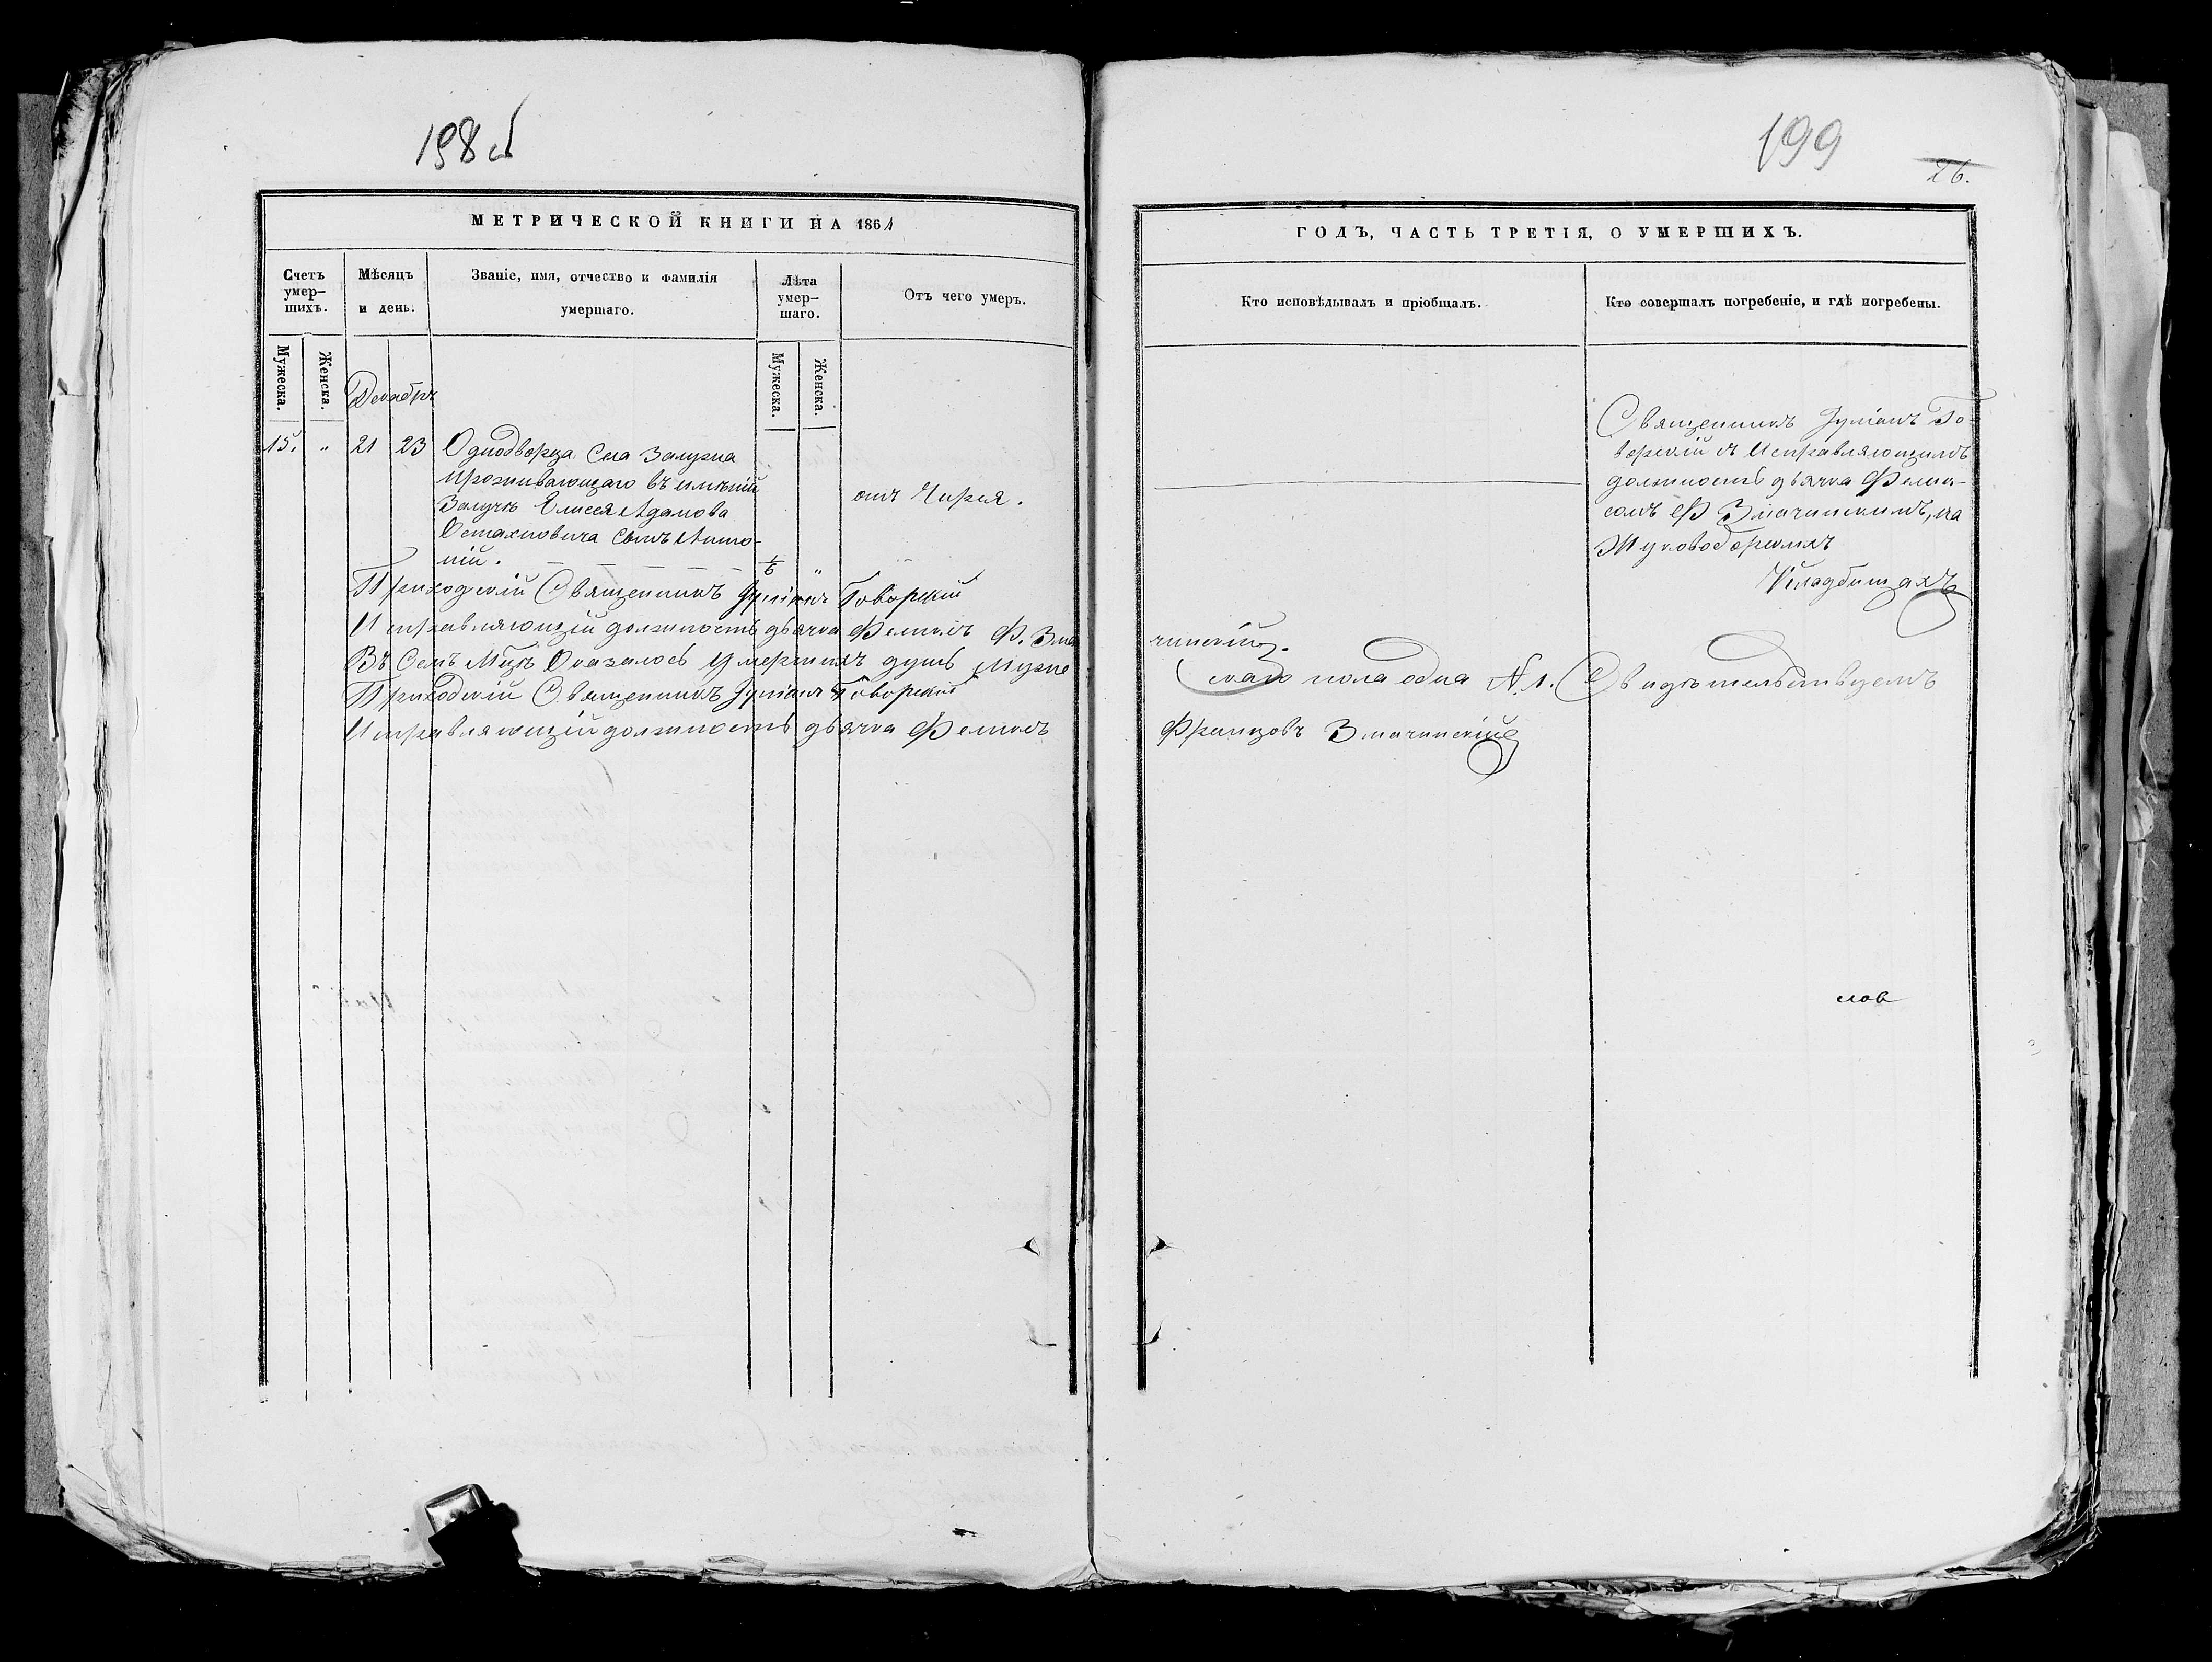 198 об
199
26.
МЕТРИЧЕСКОЙ КНИГИ НА 1861
ГОДЪ, ЧАСТЬ ТРЕТІЯ, О УМЕРШИХЪ.
Счетъ умер-шихъ.
Мѣсяцъ и день.
Званіе, имя, отчество и фамилія умершаго.
Лѣта умер-шаго.
Отъ чего умеръ.
Кто исповѣдывалъ и пріобщалъ.
Кто совершалъ погребеніе, и гдѣ погребены.
Мужеска.
Женска.
Мужеска.
Женска.
Декабрь
15. " 21 23 Однодворца Села Залужа
проживающаго въ имѣніи
Залужѣ Елисея Адамова
Остахновича Сынъ Анто-
ній. 1/6 "
отъ Чирея.
Священникъ Іуліанъ Го-
ворскій съ Исправляющимъ
должность дьячка Фелик-
сомъ Ф Змачинскимъ, на
Жуковоборскихъ
Кладбищахъ
Приходскій Священникъ Іуліанъ Говорскій
Исправляющій должность дьячка Феликсъ Ф. Зма
чинскій.
Въ Семъ Мѣцѣ Оказалось Умершихъ душъ Муже
скаго пола одна N. 1. Свидѣтельствуемъ
Приходскій Священникъ Іуліанъ Говорскій
Исправляющій должность дьячка Феликсъ
Францовъ Змачинскій